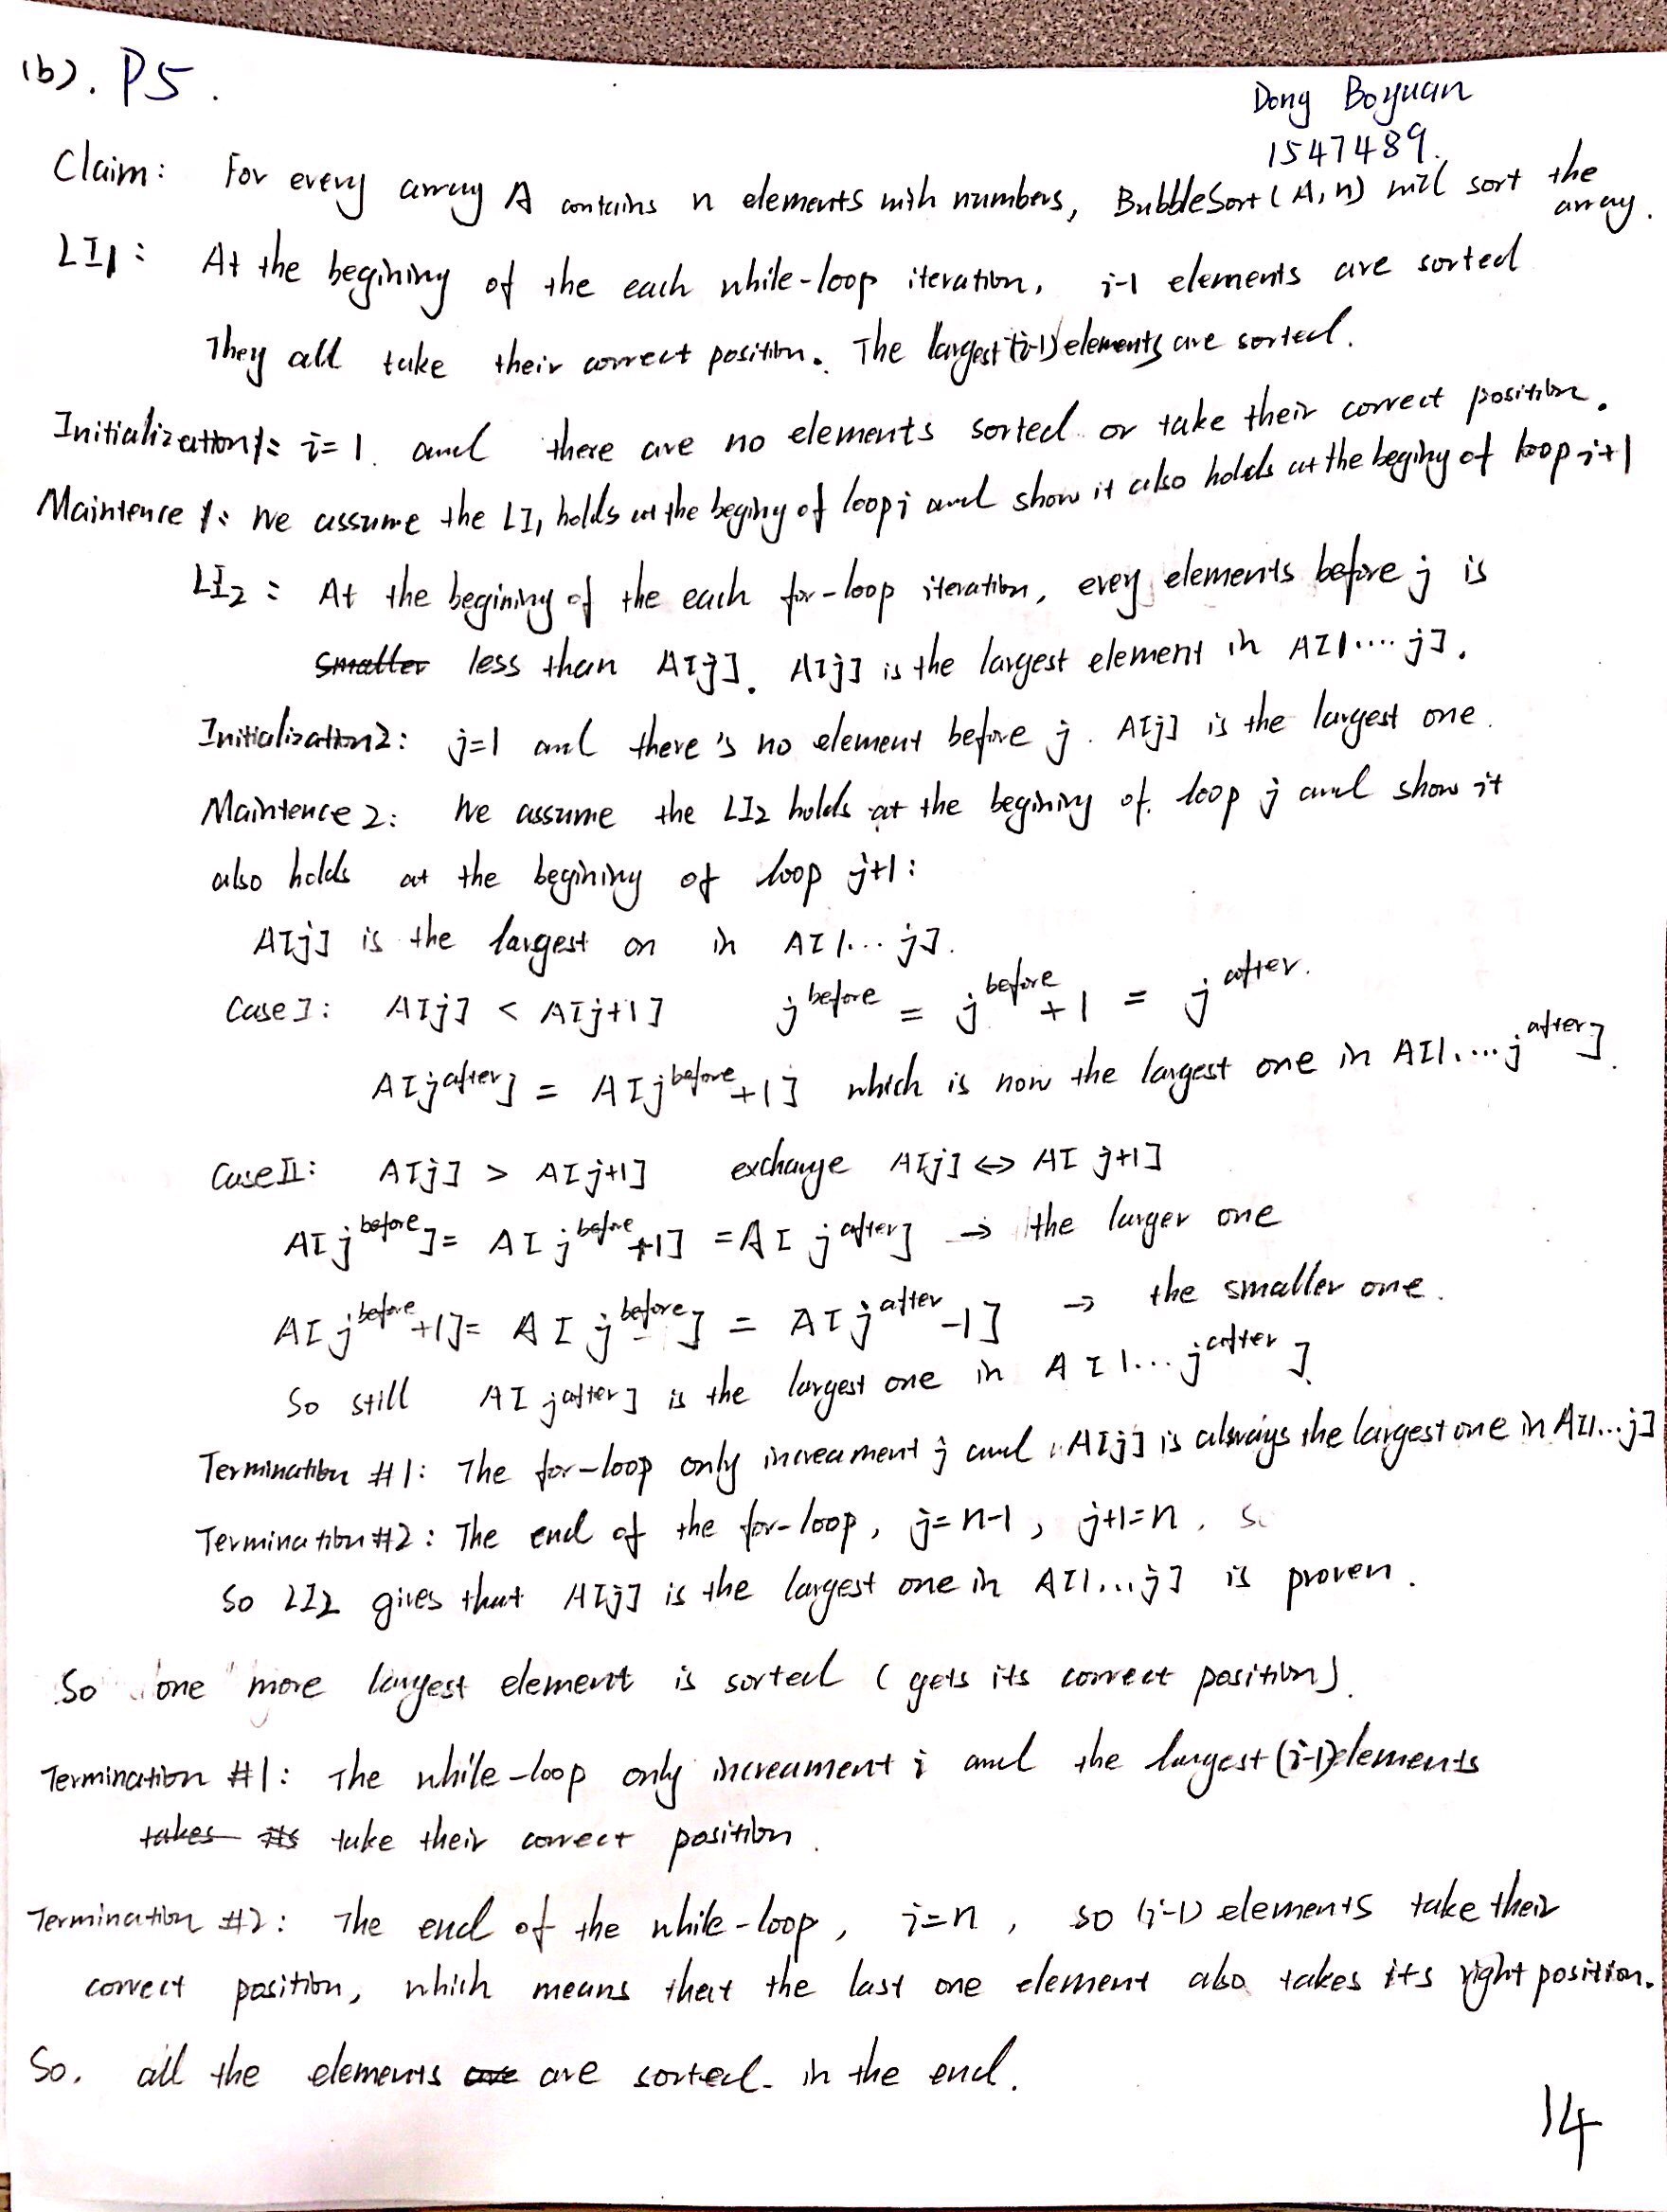 (b). P5.
Dong Boyuan
1547489.
Claim: For every array A contains n elements with numbers, BubbleSort(A, n) will sort the array.
LI1: At the begining of the each while-loop iteration, i-1 elements are sorted
They all take their correct position. The largest (i-1) elements are sorted.
Initialization1: i=1. and there are no elements sorted or take their correct position.
Maintence 1: We assume the LI1 holds at the begining of loop i and show it also holds at the begining of loop i+1
LI2: At the begining of the each for-loop iteration, every elements before j is
smaller less than A[j]. A[j] is the largest element in A[1....j].
Initialization2: j=1 and there's no element before j. A[j] is the largest one.
Maintence 2: We assume the LI2 holds at the begining of loop j and show it
also holds at the begining of loop j+1:
A[j] is the largest on in A[1...j].
Case I: A[j] < A[j+1] j^before = j^before + 1 = j^after.
A[j^after] = A[j^before+1] which is now the largest one in A[1....j^after].
Case II: A[j] > A[j+1] exchange A[j] ↔ A[j+1]
A[j^before] = A[j^before+1] = A[j^after] → the larger one
A[j^before+1] = A[j^before] = A[j^after-1] → the smaller one.
So still A[j^after] is the largest one in A[1...j^after].
Termination #1: The for-loop only increament j and A[j] is always the largest one in A[1...j]
Termination #2: The end of the for-loop, j=n-1, j+1=n. So
So LI2 gives that A[j] is the largest one in A[1...j] is proven.
So one more largest element is sorted (gets its correct position).
Termination #1: The while-loop only increament i and the largest (i-1) elements
takes its take their correct position.
Termination #2: The end of the while-loop, i=n, so (i-1) elements take their
correct position, which means that the last one element also takes its right position.
So. all the elements are are sorted in the end.
14